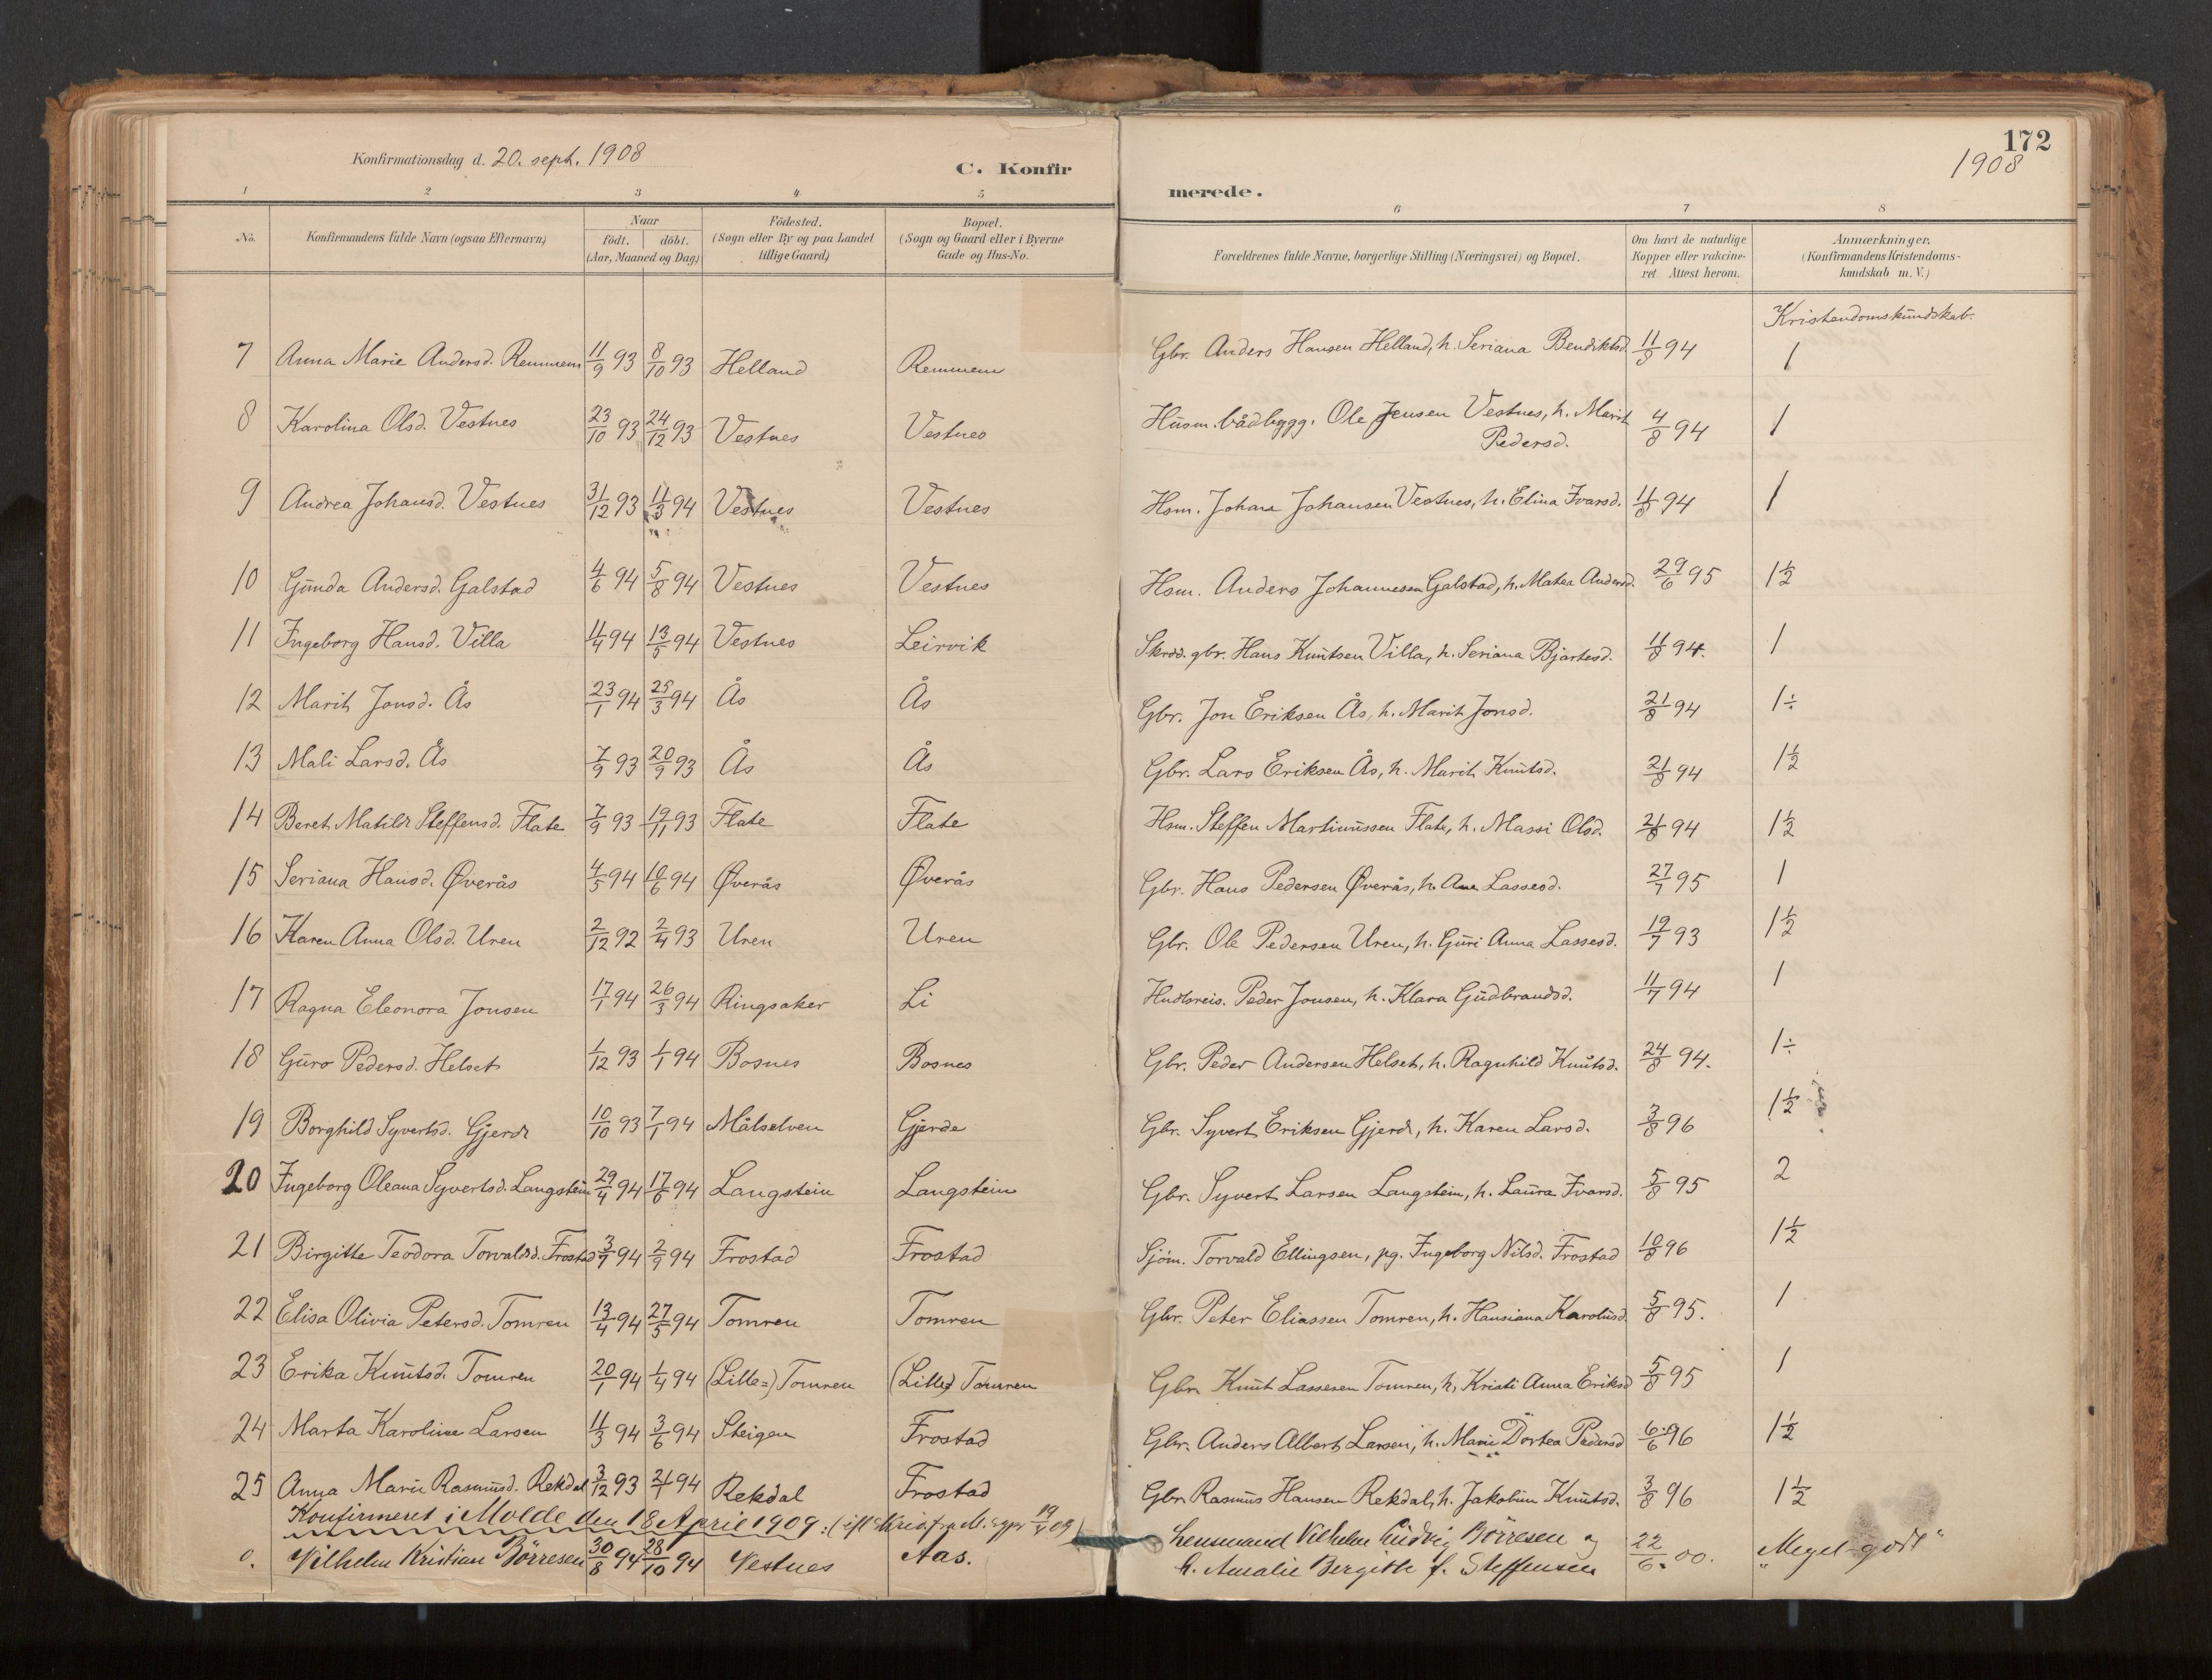 172
Konfirmationsdag d. 20. sept. 1908
1908
C. Konfirmerede.
1 2 3 4 5 6 7 8
No. Konfirmandens fulde Navn (ogsaa Efternavn) Naar født. døbt. (Aar, Maaned og Dag) Födested. (Sogn eller By og paa Landet tillige Gaard) Bopæl. (Sogn og Gaard eller i Byerne Gade og Hus-No. Forældrenes fulde Navne, borgerlige Stilling (Næringsvei) og Bopæl. Om havt de naturlige Kopper eller vakcineret Attest herom. Anmærkninger. (Konfirmandens Kristendomskundskab m. V.)
Kristendomskundskab.
7 Anna Marie Andersd. Remmem 11/9 93 8/10 93 Helland Remmem Gbr. Anders Hansen Helland, h. Seriana Bendiktsd. 11/8 94 1
8 Karolina Olsd. Vestnes 23/10 93 24/12 93 Vestnes Vestnes Husm. bådbygg. Ole Jensen Vestnes, h. Marit Pedersd. 4/8 94 1
9 Andrea Johansd. Vestnes 31/12 93 11/3 94 Vestnes Vestnes Hsm. Johan Johansen Vestnes, h. Elina Ivarsd. 11/8 94 1
10 Gunda Andersd. Galstad 4/6 94 5/8 94 Vestnes Vestnes Hsm. Anders Johannesen Galstad, h. Matea Andersd. 29/6 95 1½
11 Ingeborg Hansd. Villa 11/4 94 13/5 94 Vestnes Leirvik Skrdd. gbr. Hans Knutsen Villa, h. Seriana Bjartesd. 11/8 94. 1
12 Marit Jonsd. Ås 23/1 94 25/3 94 Ås Ås Gbr. Jon Eriksen Ås, h. Marit Jonsd. 21/8 94 1÷
13 Mali Larsd. Ås 7/9 93 20/9 93 Ås Ås Gbr. Lars Eriksen Ås, h. Marit Knutsd. 21/8 94 1½
14 Beret Matilde Steffensd. Flate 7/9 93 19/11 93 Flate Flate Hsm. Steffen Martinussen Flate, h. Massi Olsd. 21/8 94 1½
15 Seriana Hansd. Øverås 4/5 94 10/6 94 Øverås Øverås Gbr. Hans Pedersen Øverås, h. Ane Lassesd. 27/7 95 1
16 Karen Anna Olsd. Uren 2/12 92 2/4 93 Uren Uren Gbr. Ole Pedersen Uren, h. Guri Anna Lassesd. 19/7 93 1½
17 Ragna Eleonora Jonsen 17/1 94 26/3 94 Ringsaker Li Hndlsreis. Peder Jonsen, h. Klara Gudbrandsd. 11/7 94 1
18 Guro Pedersd. Helset 1/12 93 1/1 94 Bosnes Bosnes Gbr. Peder Andersen Helset, h. Ragnhild Knutsd. 24/8 94. 1÷
19 Borghild Syvertsd. Gjerde 10/10 93 7/1 94 Målselven Gjerde Gbr. Syvert Eriksen Gjerde, h. Karen Larsd. 3/8 96 1½
20 Ingeborg Oleana Syvertsd. Langstein 29/4 94 17/6 94 Langstein Langstein Gbr. Syvert Larsen Langstein, h. Laura Ivarsd. 5/8 95 2
21 Birgitte Teodora Torvaldsd. Frostad 3/7 94 2/9 94 Frostad Frostad Sjøm. Torvald Ellingsen, pg. Ingeborg Nilsd. Frostad 10/8 96 1½
22 Elisa Olivia Petersd. Tomren 13/4 94 27/5 94 Tomren Tomren Gbr. Peter Eliassen Tomren, h. Hansiana Karolusd. 5/8 95. 1
23 Erika Knutsd. Tomren 20/1 94 1/4 94 (Lille=) Tomren (Lille=) Tomren Gbr. Knut Lassesen Tomren, h. Kristi Anna Eriksd 5/8 95 1
24 Marta Karoline Larsen 11/3 94 3/6 94 Steigen Frostad Gbr. Anders Albert Larsen, h. Marie Dortea Pedersd 96 1½
25 Anna Marie Rasmusd. Rekdal 3/12 93 21/1 94 Rekdal Frostad Gbr. Rasmus Hansen Rekdal, h. Jakobine Knutsd. 3/8 96 1½
Konfirmeret i Molde den 18 April 1909: (ifl. Skriv. fra M. sgpr 19/4 09)
o. Vilhelm Kristian Börresen 30/8 94 28/10 94 Vestnes Aas. Lensmand Vilhelm Ludvig Börresen og h. Amalie Bergitte f. Steffensen 22/6. 00. "Meget godt"